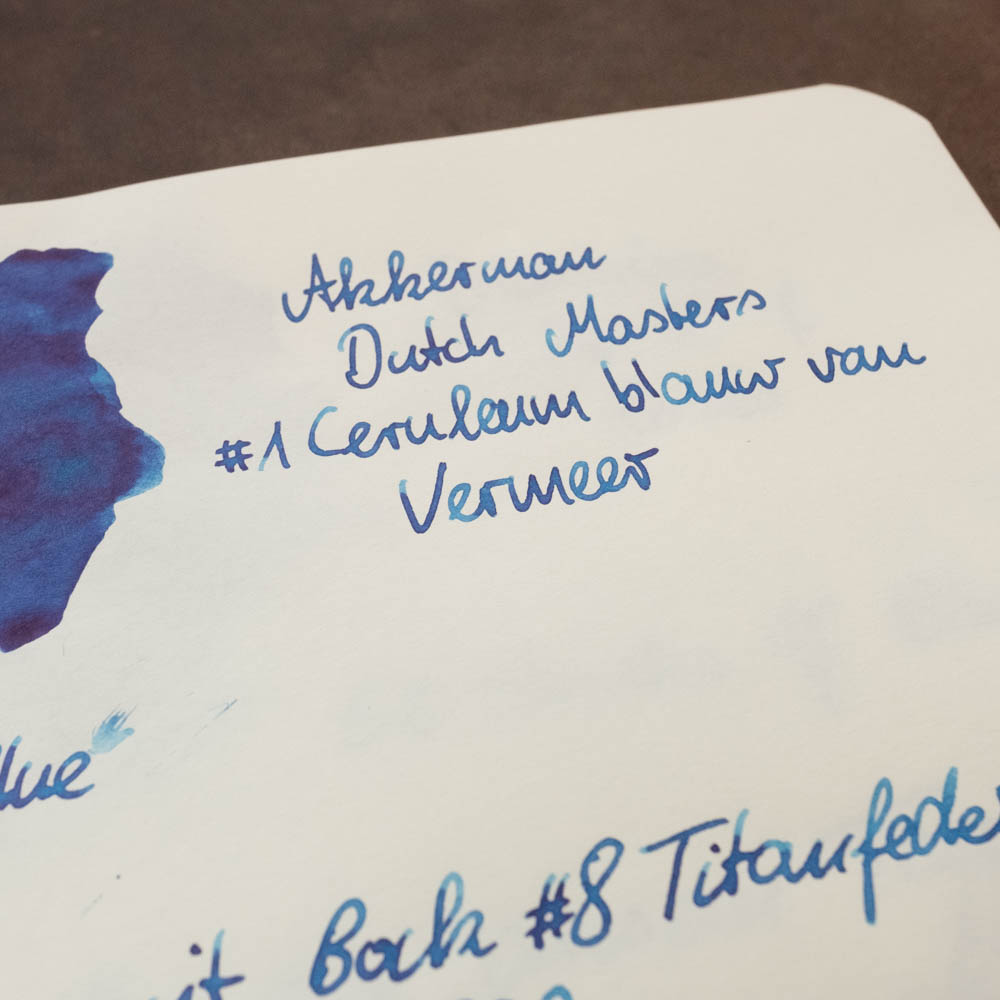 Akkerman
Dutch Masters
#1 Ceruleum blauw van
Vermeer
mit Bock #8 Titanfeder